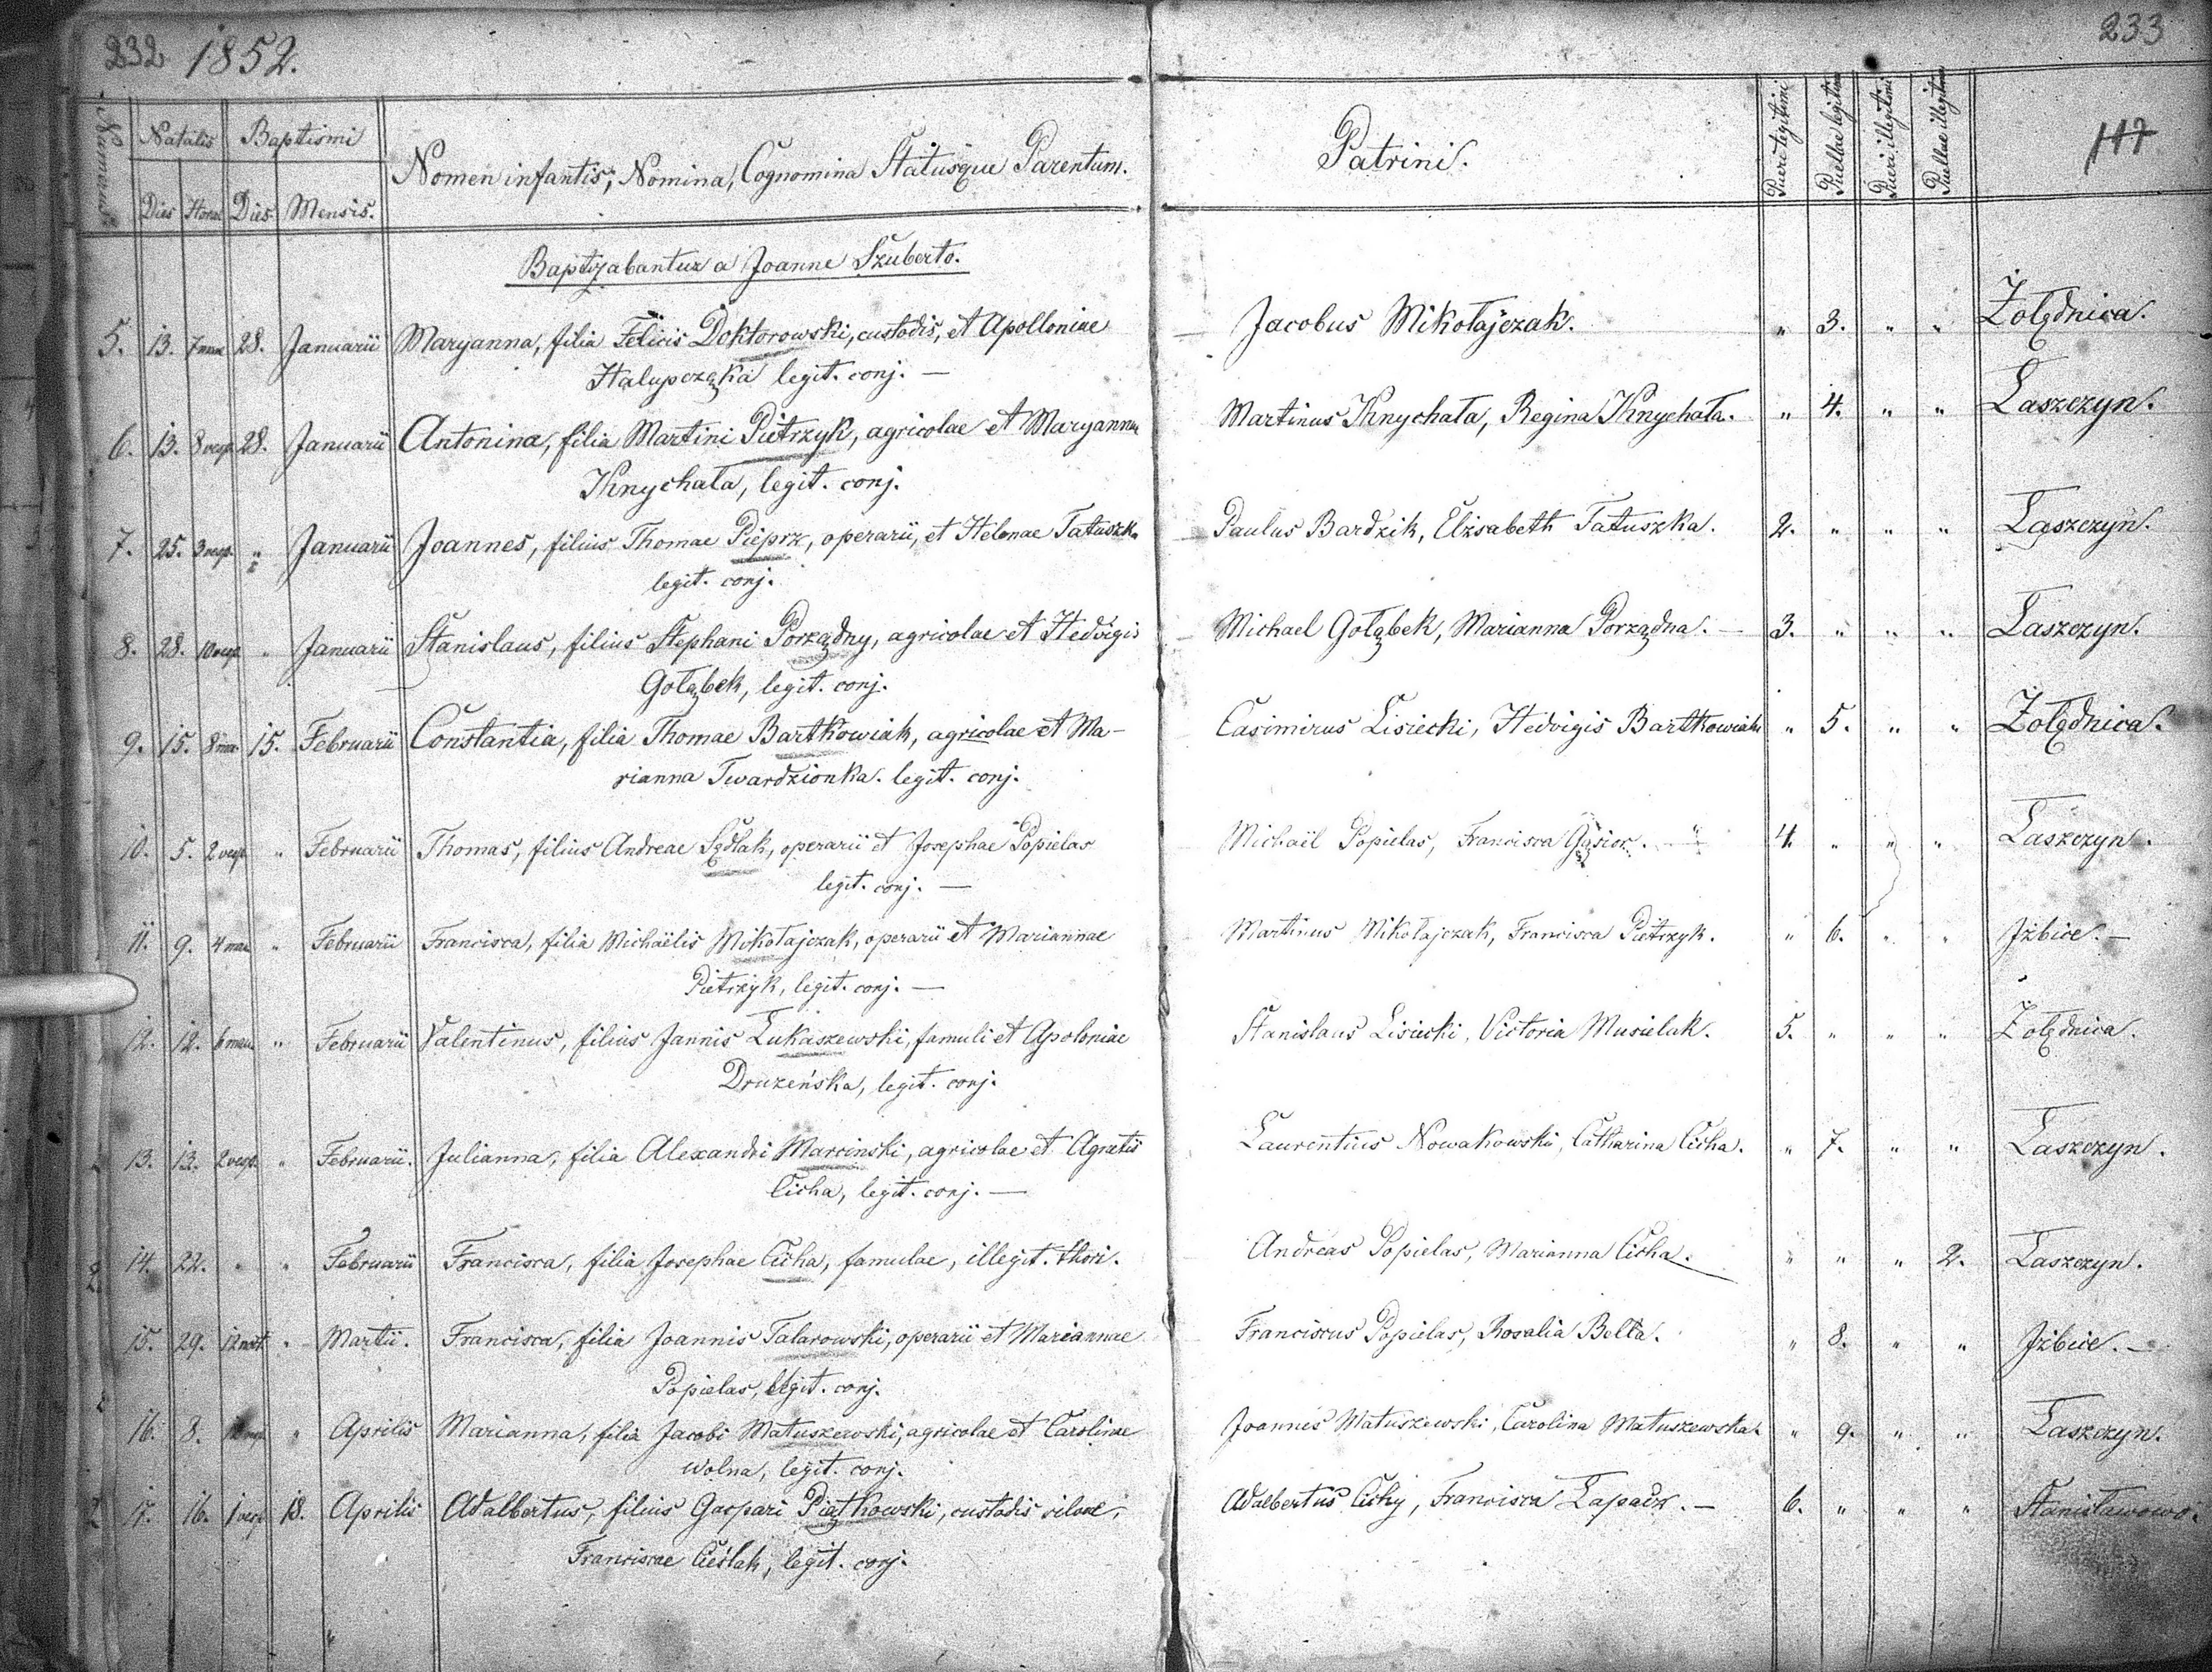 232 1852.
233
Numerus Natalis Baptismi Nomen infantis, Nomina, Cognomina Statusque Parentum. Patrini. Pueri legitimi Puellae legitimae Pueri illegitimi Puellae illegitimae 117
Dies Horae Dies Mensis.
Baptizabantur a Joanne Szuberto.
5. 13. 7 mane 28. Januarii Maryanna, filia Felicis Doktorowski, custodis, et Apolloniae Jacobus Mikołajczak. " 3. " " Żołędnica.
Hałupcząka legit. conj. —
6. 13. 8 vesp. 28. Januarii Antonina, filia Martini Pietrzyk, agricolae et Maryanna Martinus Knychała, Regina Knychała. " 4. " " Łaszczyn.
Knychała, legit. conj.
7. 25. 3 vesp. " Januarii Joannes, filius Thomae Pieprz, operarii, et Helenae Tatuszka Paulus Bardzik, Elisabeth Tatuszka. 2. " " " Łaszczyn.
legit. conj.
8. 28. 10 vesp. " Januarii Stanislaus, filius Stephani Porządny, agricolae et Hedvigis Michael Gołąbek, Marianna Porządna. — 3. " " " Łaszczyn.
Gołąbek, legit. conj.
9. 15. 8 ma. 15. Februarii Constantia, filia Thomae Bartkowiak, agricolae et Ma- Casimirus Lisiecki, Hedvigis Bartkowiak " 5. " " Żołędnica.
rianna Twardzionka. legit. conj.
10. 5. 2 vesp. " Februarii Thomas, filius Andreae Sędłak, operarii et Josephae Popielas Michaël Popielas, Francisca Gąsior. 4. " " " Łaszczyn.
legit. conj. —
11. 9. 4 man. " Februarii Francisca, filia Michaëlis Mikołajczak, operarii et Mariannae Martinus Mikołajczak, Francisca Pietrzyk. " 6. " " Jzbice. —
Pietrzyk, legit. conj. —
12. 12. 6 man. " Februarii Valentinus, filius Jannis Łukaszewski, famuli et Apoloniae Stanislaus Lisiecki, Victoria Musielak. 5. " " " Żołędnica.
Druzeńska, legit. conj.
13. 13. 2 vesp. " Februarii. Julianna, filia Alexandri Marcinski, agricolae et Agnetis Laurentius Nowakowski, Catharina Cicha. " 7. " " Łaszczyn.
Cicha, legit. conj. —
14. 22. " " Februarii Francisca, filia Josephae Cicha, famulae, illegit. thori. Andreas Popielas, Marianna Cicha. " " " 2. Łaszczyn.
15. 29. 12 noct. " Martii. Francisca, filia Joannis Talarowski, operarii et Mariannae Franciscus Popielas, Rosalia Bełta. " 8. " " Jzbice. —
Popielas, legit. conj.
16. 8. vesp. " Aprilis Marianna, filia Jacobi Matuszewski, agricolae et Carolinae Joannes Matuszewski, Carolina Matuszewska. " 9. " " Łaszczyn.
Wolna, legit. conj.
17. 16. 1 vesp. 18. Aprilis Adalbertus, filius Gaspari Piątkowski, custodis silvae, Adalbertus Cichy, Francisca Łapacz. — 6. " " " Stanisławowo.
Franciscae Cieślak, legit. conj.